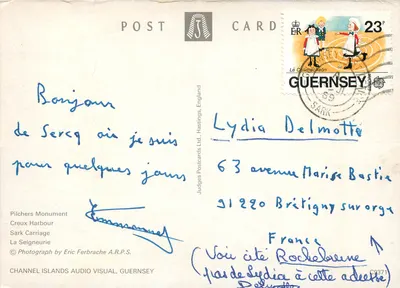 POST CARD
J
ER
23p
GUERNSEY
SARK
Bonjour
de Sercq où je suis
pour quelques jours
Emmanuel
Lydia Delmotte
63 avenue Marise Bastie
91220 Brétigny sur orge
France
(Voir cité Rochebrune
(pas de Lydia à cette adresse)
Delmotte
Judges Postcards Ltd., Hastings, England
Pilchers Monument
Creux Harbour
Sark Carriage
La Seigneurie
© Photograph by Eric Ferbrache A.R.P.S.
CHANNEL ISLANDS AUDIO VISUAL, GUERNSEY